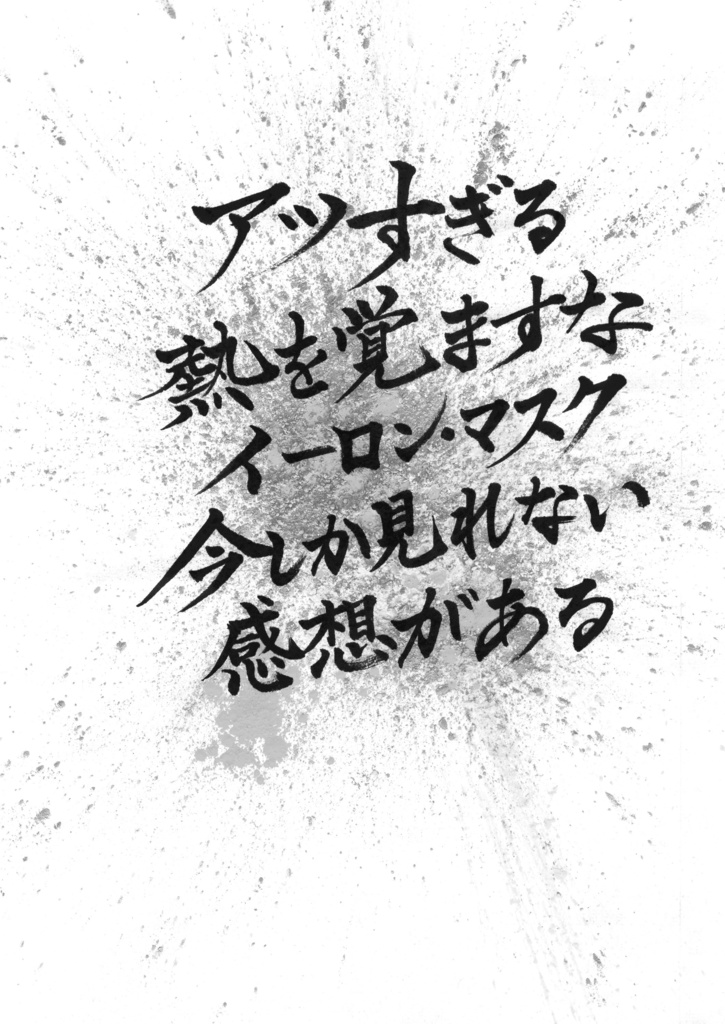 アツすぎる
熱を覚ますな
イーロン・マスク
今しか見れない
感想がある